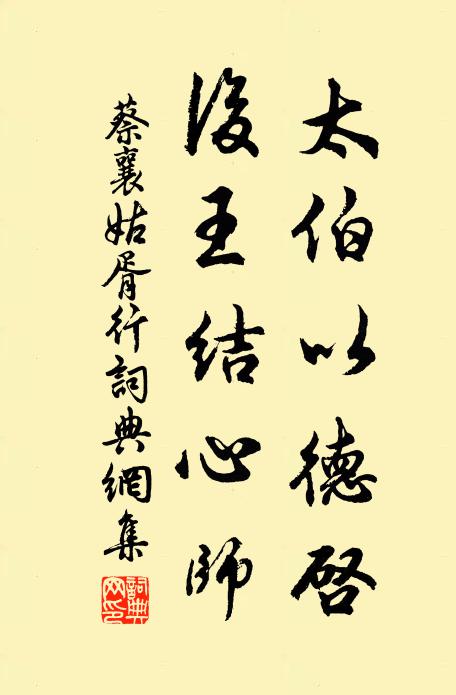 太伯以德啓
後王結心師
蔡襄姑胥行詞典網集
詞典網印